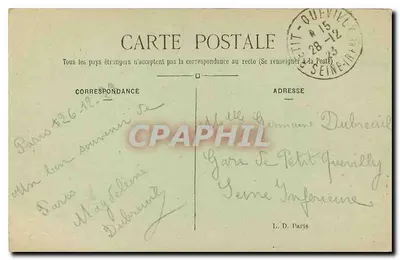 PETIT-QUEVILLY
15
28-12
23
SEINE-INFRE
CARTE POSTALE
Tous les pays étrangers n'acceptent pas la correspondance au recto (Se renseigner à la Poste)
CORRESPONDANCE
ADRESSE
Paris 26-12-23
Un bon souvenir de
Paris
Magdeleine
Dubreuil
Mlle Germaine Dubreuil
Gare de Petit Quevilly
Seine Inférieure
CARTE-POSTALE.COM
L. D. Paris